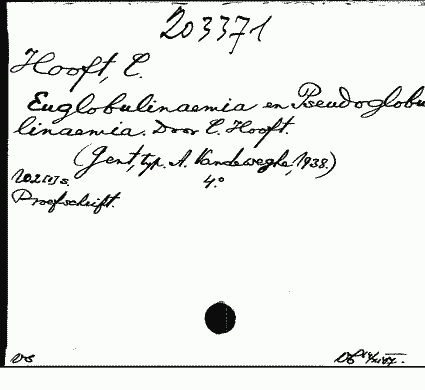 203371
Hooft, C.
Euglobulinaemia en Pseudoglobu
linaemia. Door C. Hooft.
(Gent, typ. A. Vandeweghe, 1938.)
4.°
Proefschrift.